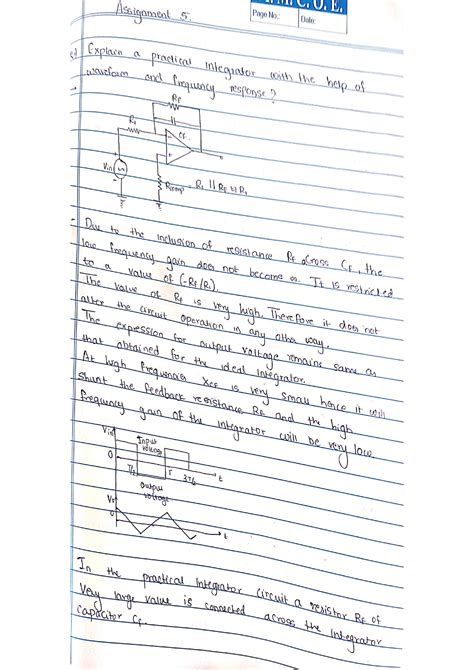 Assignment 5.
A.I.M.C.O.E.
Page No.: Date:
Explain a practical Integrator with the help of
waveform and frequency response?
RF
R1
CF
Vin
Rcomp = R1 || RF ≈ R1
- Due to the inclusion of resistance RF across CF, the
low frequency gain does not become ∞. It is restricted
to a value of (-RF/R1).
The value of RF is very high. Therefore it does not
alter the circuit operation in any other way.
The expression for output voltage remains same as
that obtained for the ideal Integrator.
At high frequencies XCF is very small hence it will
shunt the feedback resistance RF and the high
frequency gain of the integrator will be very low.
Vin
Input
voltage
0
T/2 T 3T/2 t
Output
voltage
0
t
In the practical Integrator circuit a resistor RF of
Very large value is connected across the Integrator
capacitor CF.